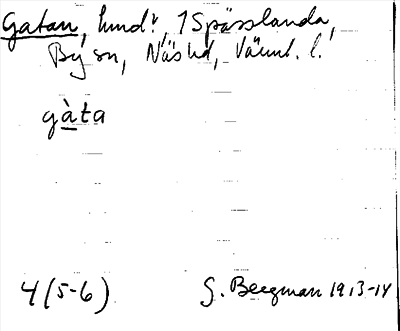 Gatan, hmd, 1 Spässlanda,
By sn, Näs hd, Värml. l.
gàta
4 (5-6) G. Bergman 1913-14